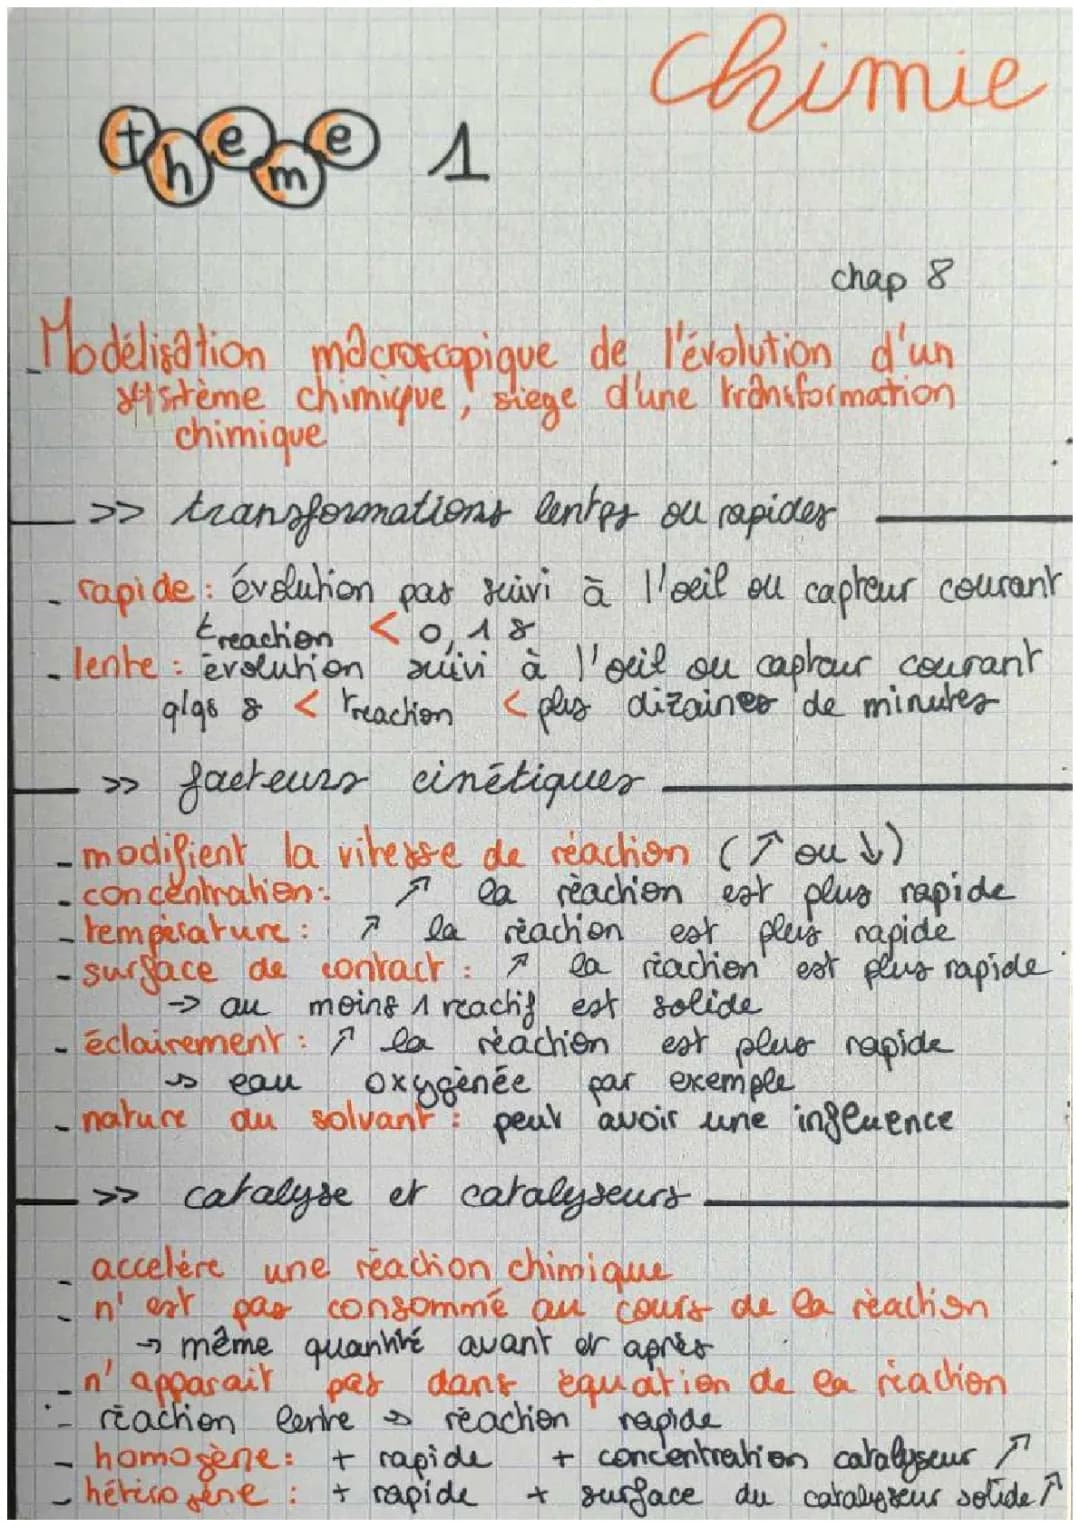 Chimie
theme 1
chap 8
- Modélisation macroscopique de l'évolution d'un
système chimique, siege d'une transformation
chimique
>> transformations lentes ou rapides
- rapide : évolution pas suivi à l'oeil ou capteur courant
t reaction < 0,1 s
- lente : évolution suivi à l'oeil ou capteur courant
qlqs s < t reaction < plus dizaines de minutes
>> facteurs cinétiques
- modifient la vitesse de réaction (↗ ou ↓)
- concentration : ↗ la réaction est plus rapide
- température : ↗ la réaction est plus rapide
- surface de contact : ↗ la réaction est plus rapide
-> au moins 1 reactif est solide
- éclairement : ↗ la réaction est plus rapide
-> eau oxygénée par exemple
- nature du solvant : peut avoir une influence
>> catalyse et catalyseurs
- accelére une réaction chimique
- n'est pas consommé au cours de la réaction
-> même quantité avant et après
- n'apparait pas dans équation de la réaction
- réaction lente -> réaction rapide
- homogène : + rapide + concentration catalyseur ↗
- hétérogène : + rapide + surface du catalyseur solide ↗